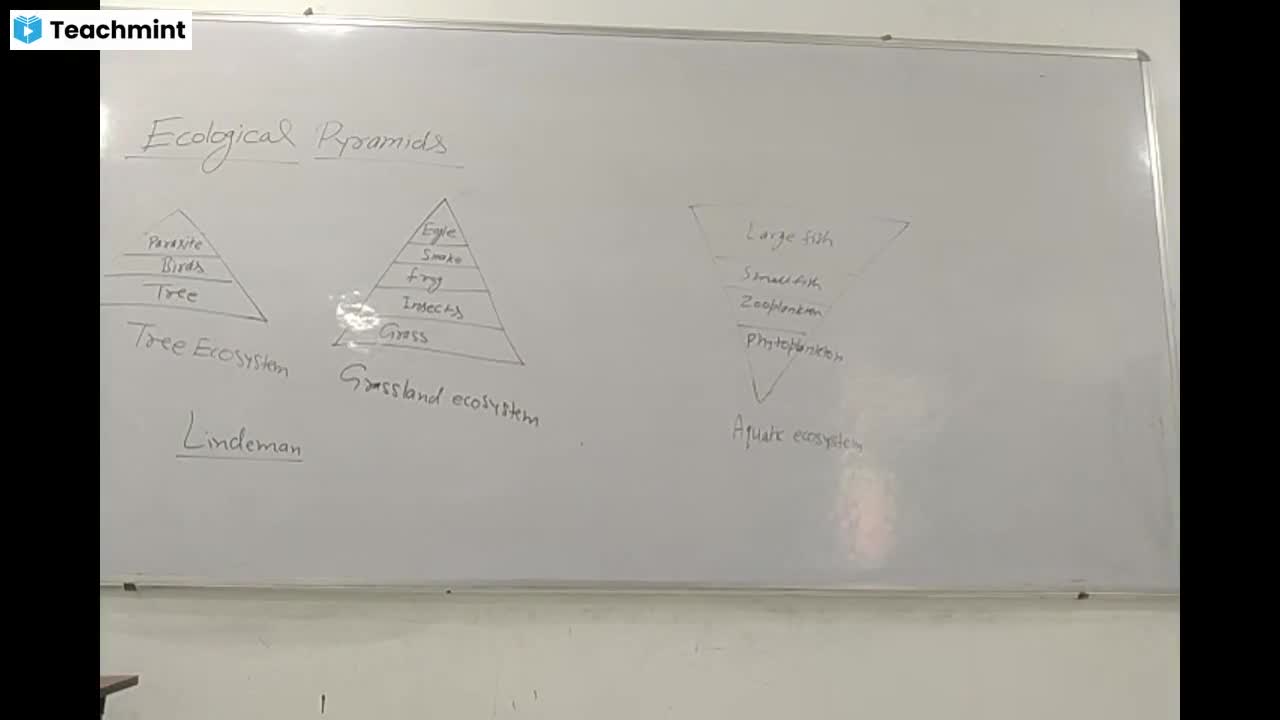 Teachmint
Ecological Pyramids
Parasite
Birds
Tree
Tree Ecosystem
Egle
Snake
frog
Insects
Grass
Grassland ecosystem
Large fish
Small fish
Zooplankton
Phytoplankton
Aquatic ecosystem
Lindeman